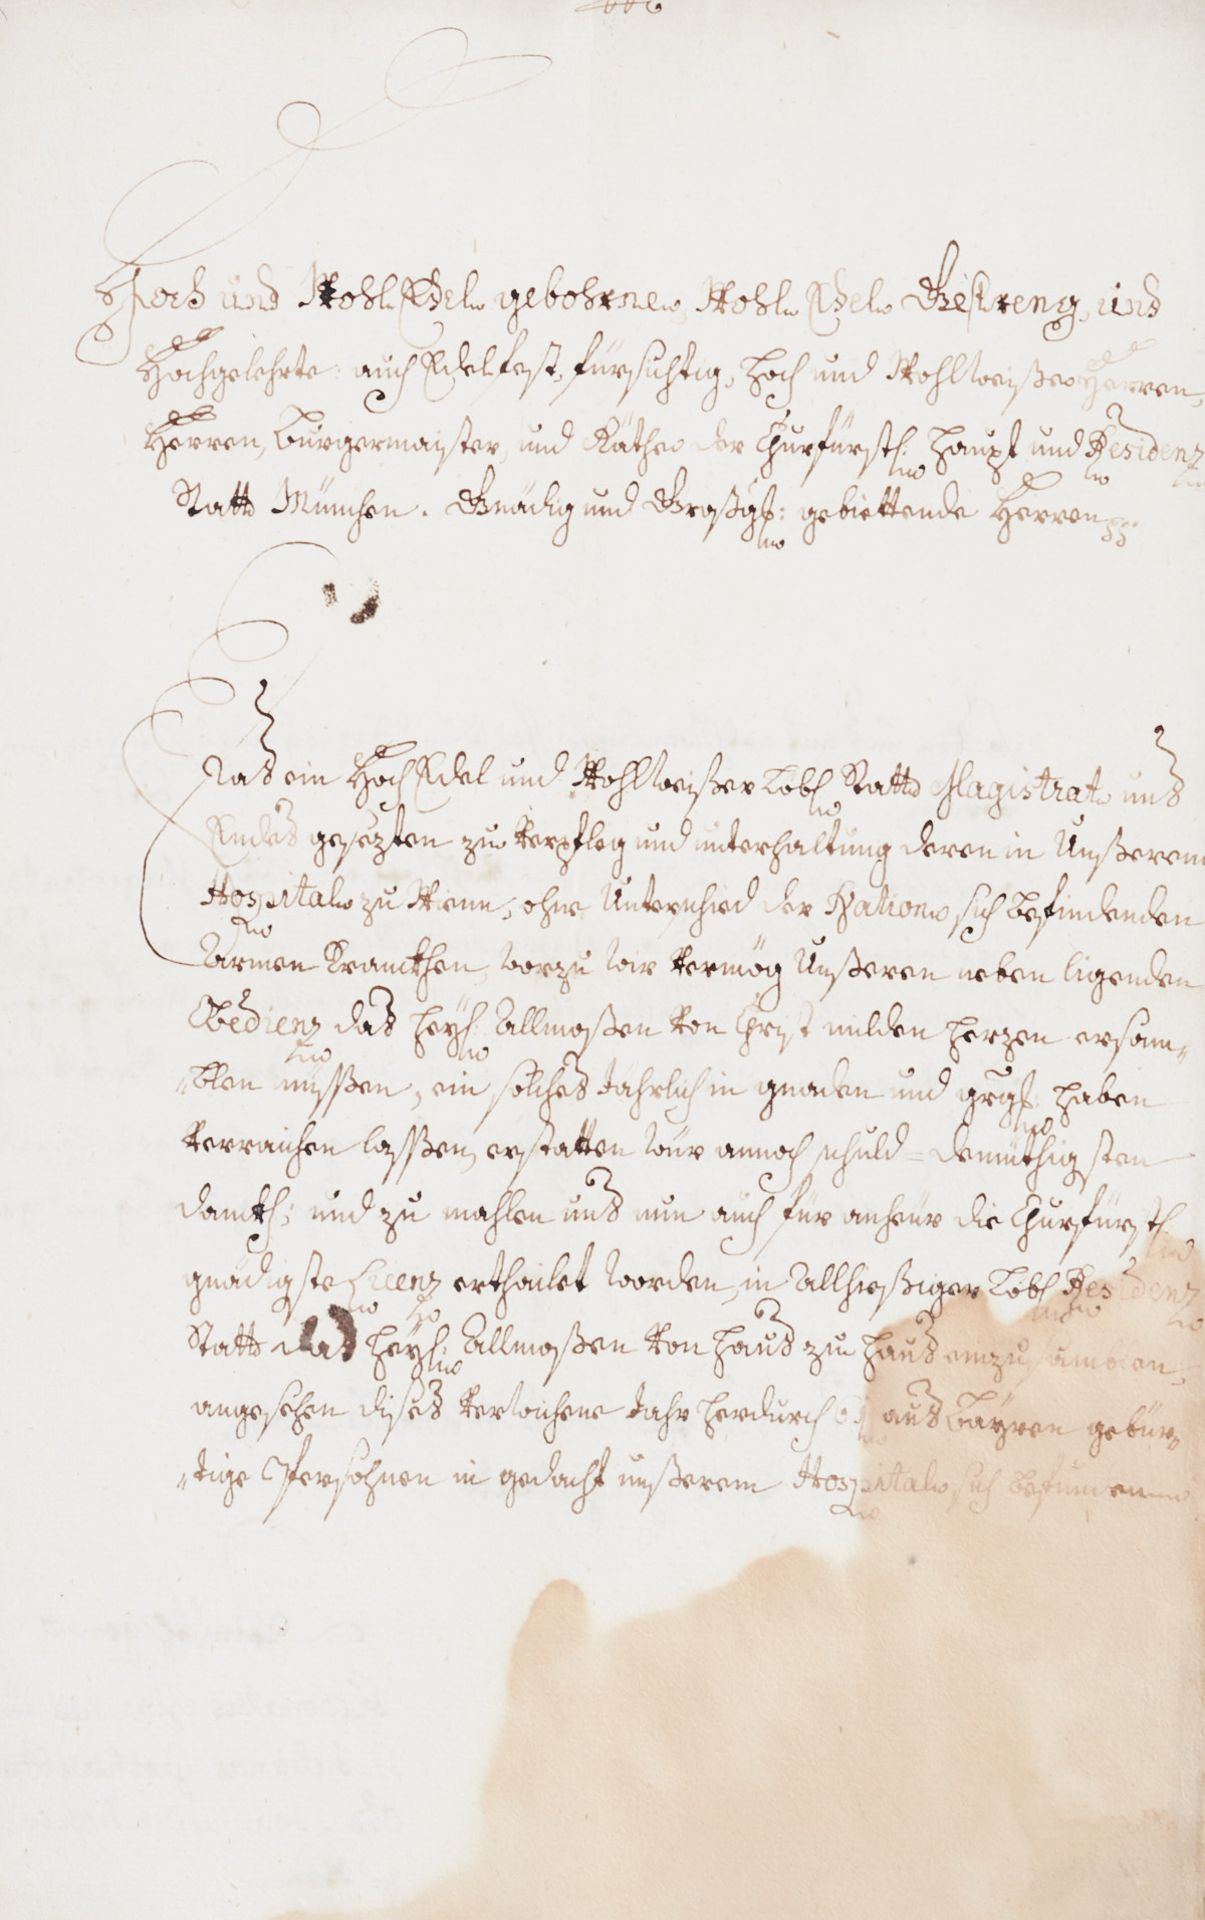 Hoch und Wohl Edel gebohrne, Wohl Edel Gestreng, und
Hochgelehrte: auch Edelfest, fürsichtig, hoch und Wohlweiße Herren,
Herren, Burgermaister, und Räthe der Churfürstl: Haupt und Residenz
Statt München. Gnädig und Großgst: gebiettende Herren
Das ein Hoch Edel und Wohlweißer Löbl: Statt Magistrat uns
Endes gesezten zu Verpfleg und unterhaltung deren in Unßerem
Hospital zu Wienn, ohne Unterschied der Nation sich befindenden
Armen Krancken, worzu wir Vermög Unßeren neben ligenden
Obedienz das heyl: Allmoßen von Christ milden herzen ersam„
„blen müssßen, ein solches Jährlich in gnaden und grgst: haben
Verraichen lassßen, erstatten wür annoch schuld= demüthigsten
danckh; und zu mahlen uns nun auch für anheür die Churfürstl:
gnädigste Licenz erthailet worden, in Allhießiger Löbl: Residenz
Statt das heyl: Allmoßen von Haus zu Haus einzusamblen,
angesehen dises verwichene Jahr herdurch aus Bayren gebür„
„tige Persohnen in gedacht unßerem Hospital sich befunden